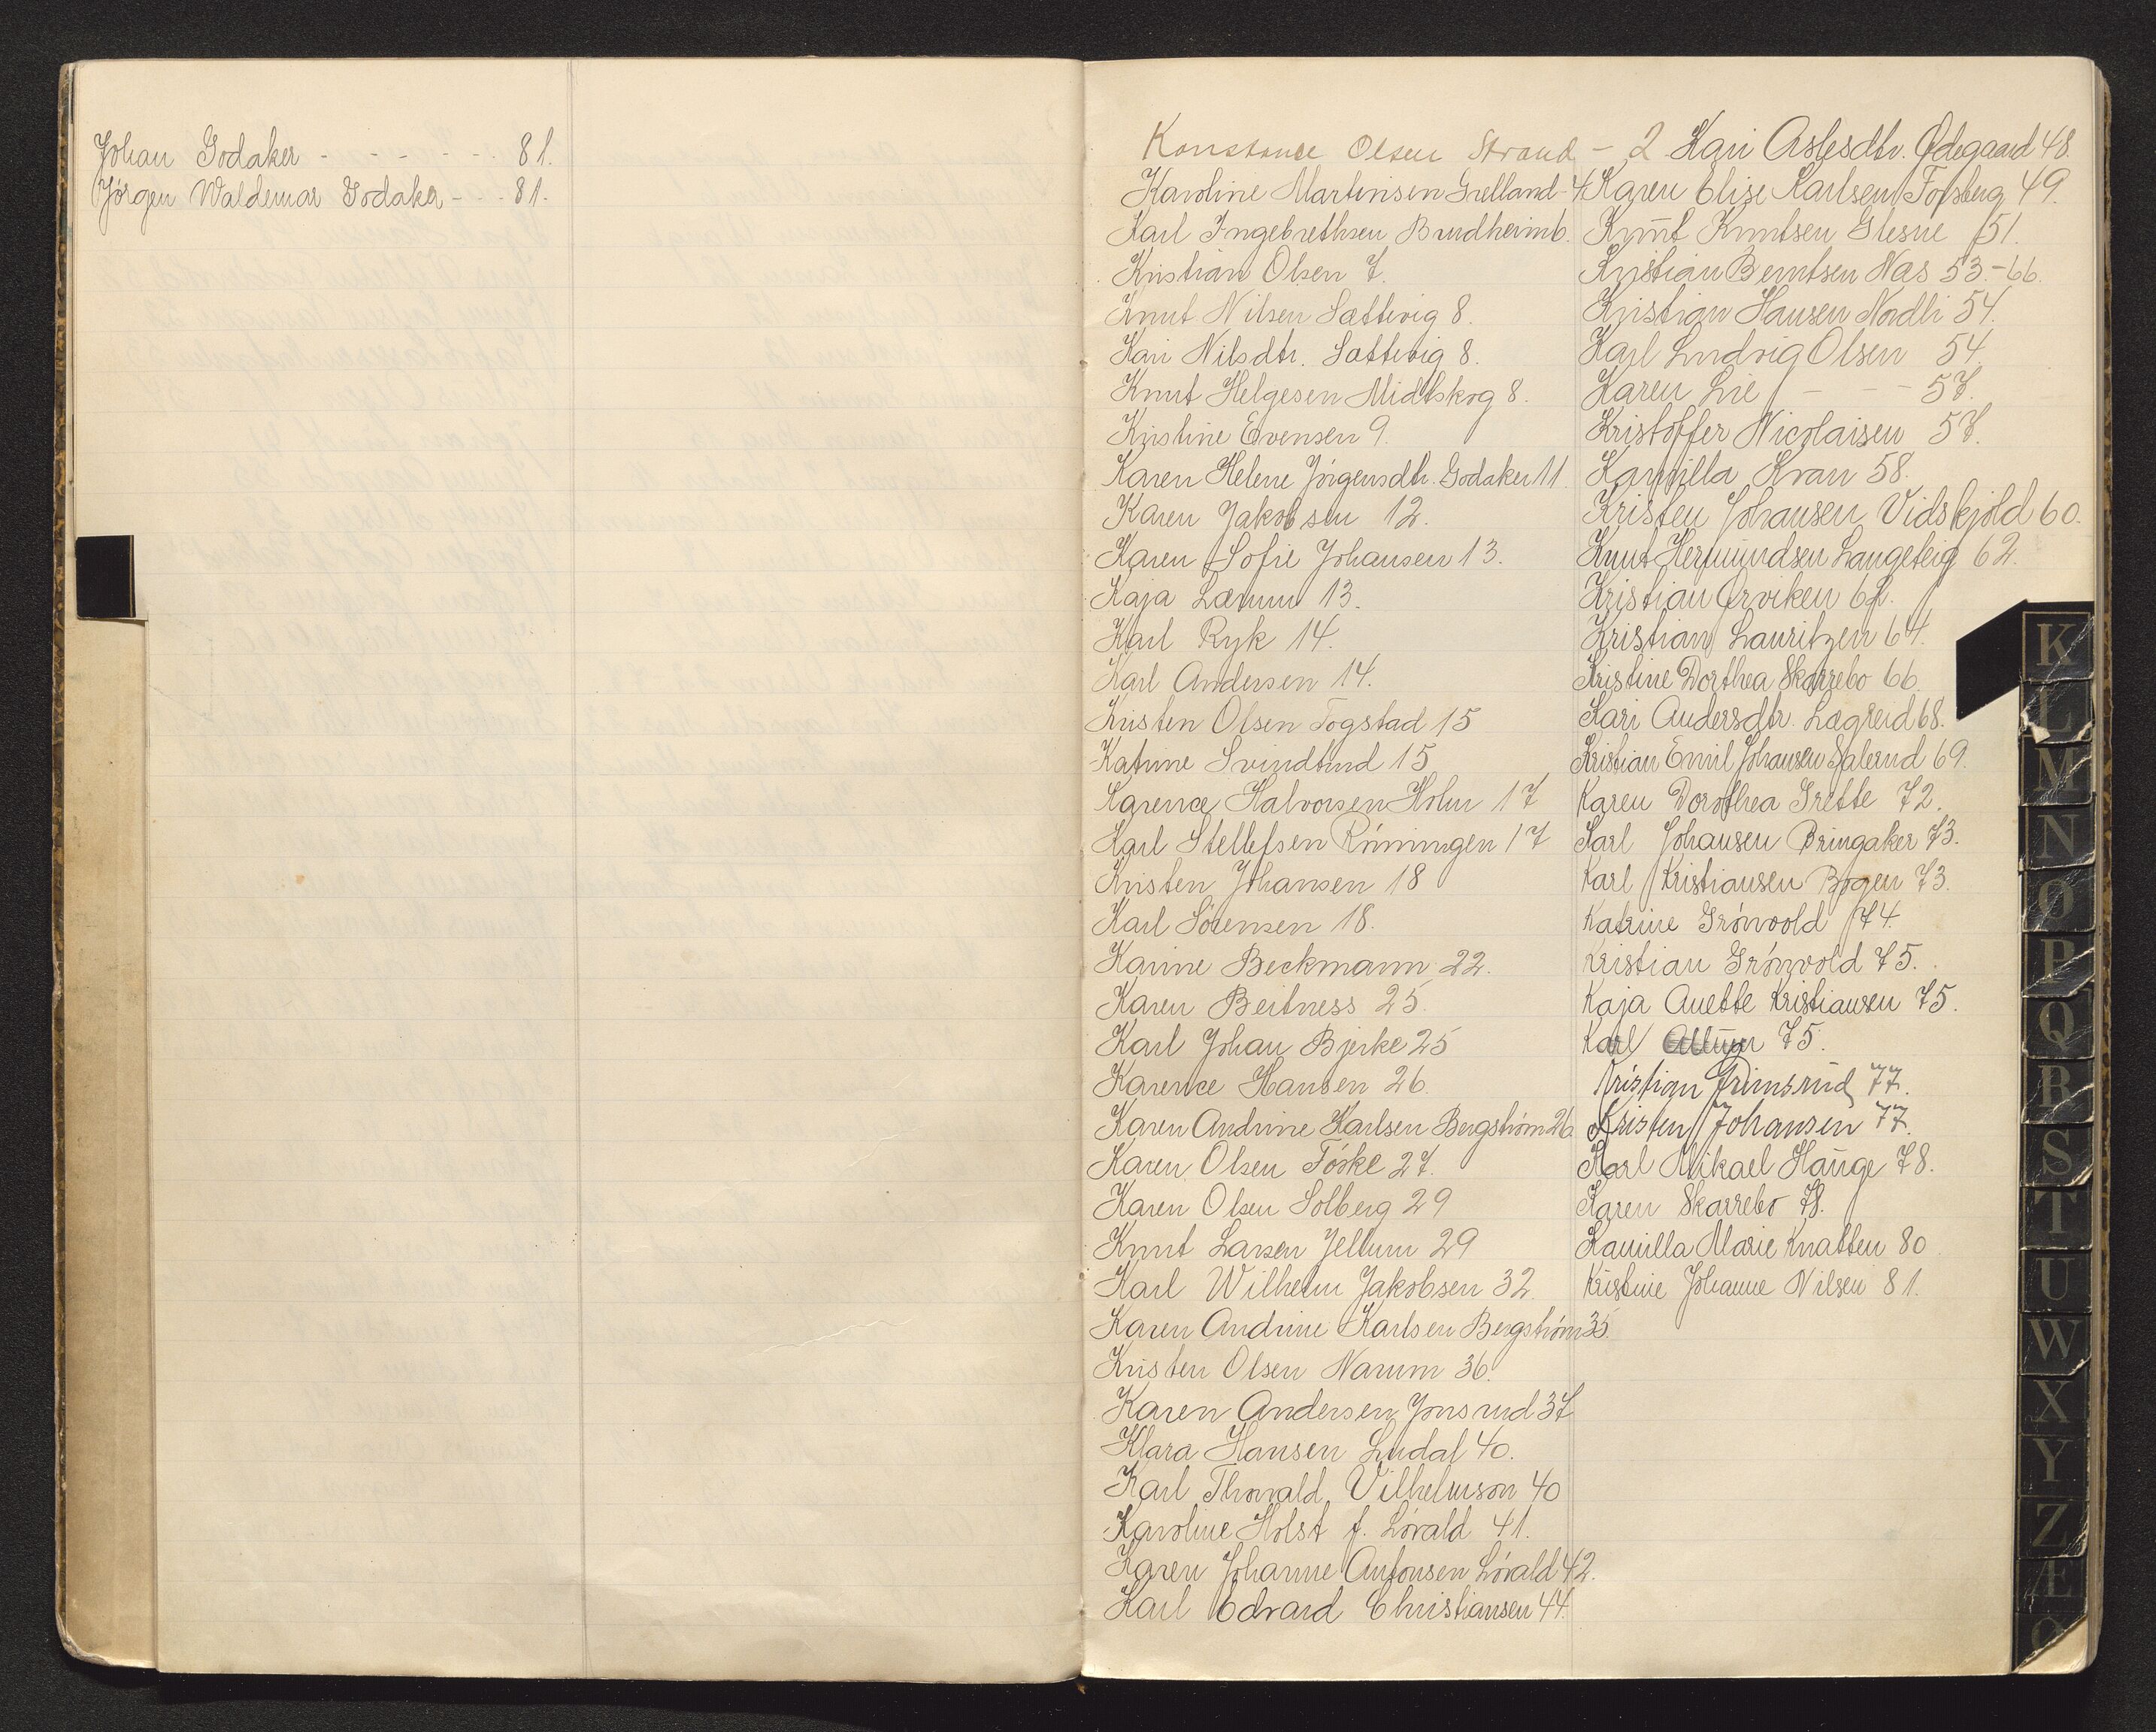 Johan Godaker - - - - - - 81.
Jörgen Waldemar Godaker - - - 81.
Konstanse Olsen Strand - 2
Karoline Martinsen Grelland - 4
Karl Ingebrethsen Brudheim 6.
Kristian Olsen 7.
Knut Nilsen Sættevig 8.
Kari Nilsdtr. Sættevig 8.
Knut Helgesen Midtskog 8.
Kristine Evensen 9.
Karen Helene Jörgensdtr. Godaker 11
Karen Jakobsen 12.
Karen Sofie Johansen 13.
Kaja Lærum 13.
Karl Ryk 14.
Karl Andersen 14.
Kristen Olsen Togstad 15
Katrine Svindtrud 15
Karence Halvorsen Holm 17
Karl Stellefsen Rönningen 17
Kristen Johansen 18
Karl Sörensen 18.
Karine Beckmann 22.
Karen Beitness 25.
Karl Johan Bjerke 25
Karence Hansen 26.
Karen Andrine Karlsen Bergström 26
Karen Olsen Töske 27.
Karen Olsen Solberg 29
Knut Larsen Jellum 29
Karl Wilhelm Jakobsen 32.
Karen Andrine Karlsen Bergström 35.
Kristen Olsen Narum 36.
Karen Andersen Jonsrud 37
Klara Hansen Lindal 40.
Karl Thorvald Vilhelmson 40
Karoline Holst f. Lövald 41.
Karen Johanne Antonsen Lövald 42.
Karl Edvard Christiansen 44.
Kari Aslesdtr. Ødegaard 48.
Karen Elise Karlsen Forsberg 49.
Knut Knutsen Glesne 51.
Kristian Berntsen Næs 53.-66.
Kristian Hansen Nordli 54.
Karl Ludvig Olsen 54.
Karen Lie - - - 57.
Kristoffer Nicolaisen 57.
Kamilla Kran 58.
Kristen Johansen Vidskjold 60.
Knut Hermundsen Langeteig 62.
Kristian Ørviken 62.
Kristian Lauritzen 64.
Kristine Dorthea Skarrebo 66.
Kari Andersdtr. Lægreid 68.
Kristian Emil Johansen Salerud 69.
Karen Dorothea Grette 72.
Karl Johansen Bringaker 73.
Karl Kristiansen Bogen 73.
Katrine Grönvold 74.
Kristian Grönvold 75.
Kaja Anette Kristiansen 75.
Karl 75.
Kristian Grimsrud 77.
Kristen Johansen 77.
Karl Mikael Hauge 78.
Karen Skarrebo 78.
Kamilla Marie Knatten 80
Kristine Johanne Nilsen 81.
K
L
M
N
O
P
Q
R
S
T
U
W
X
Y
Z
Æ